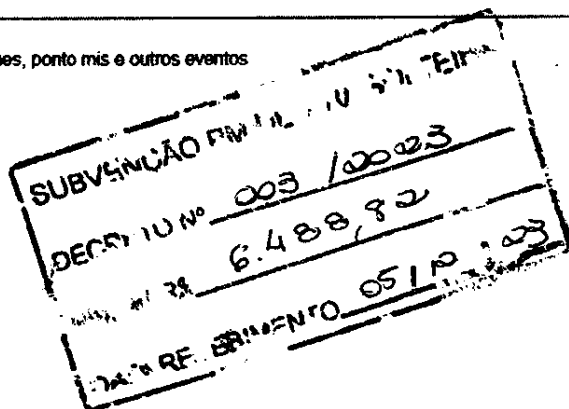 es, ponto mis e outros eventos
SUBVENÇÃO
DECRETO Nº 003 / 2023
R$ 6.488,82
DATA RECEBIMENTO 05/12/23